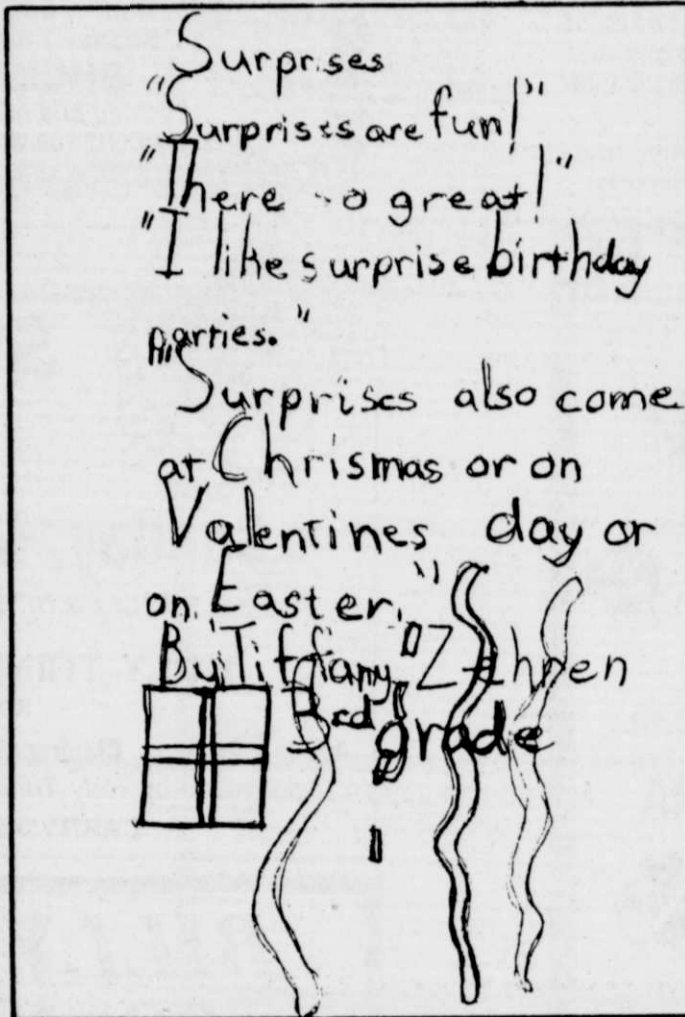 Surprises
"Surprises are fun!"
"There so great!"
"I like surprise birthday
parties."
"Surprises also come
at Chrismas or on
Valentines day or
on Easter."
By: Tiffany Zehnen
3rd grade